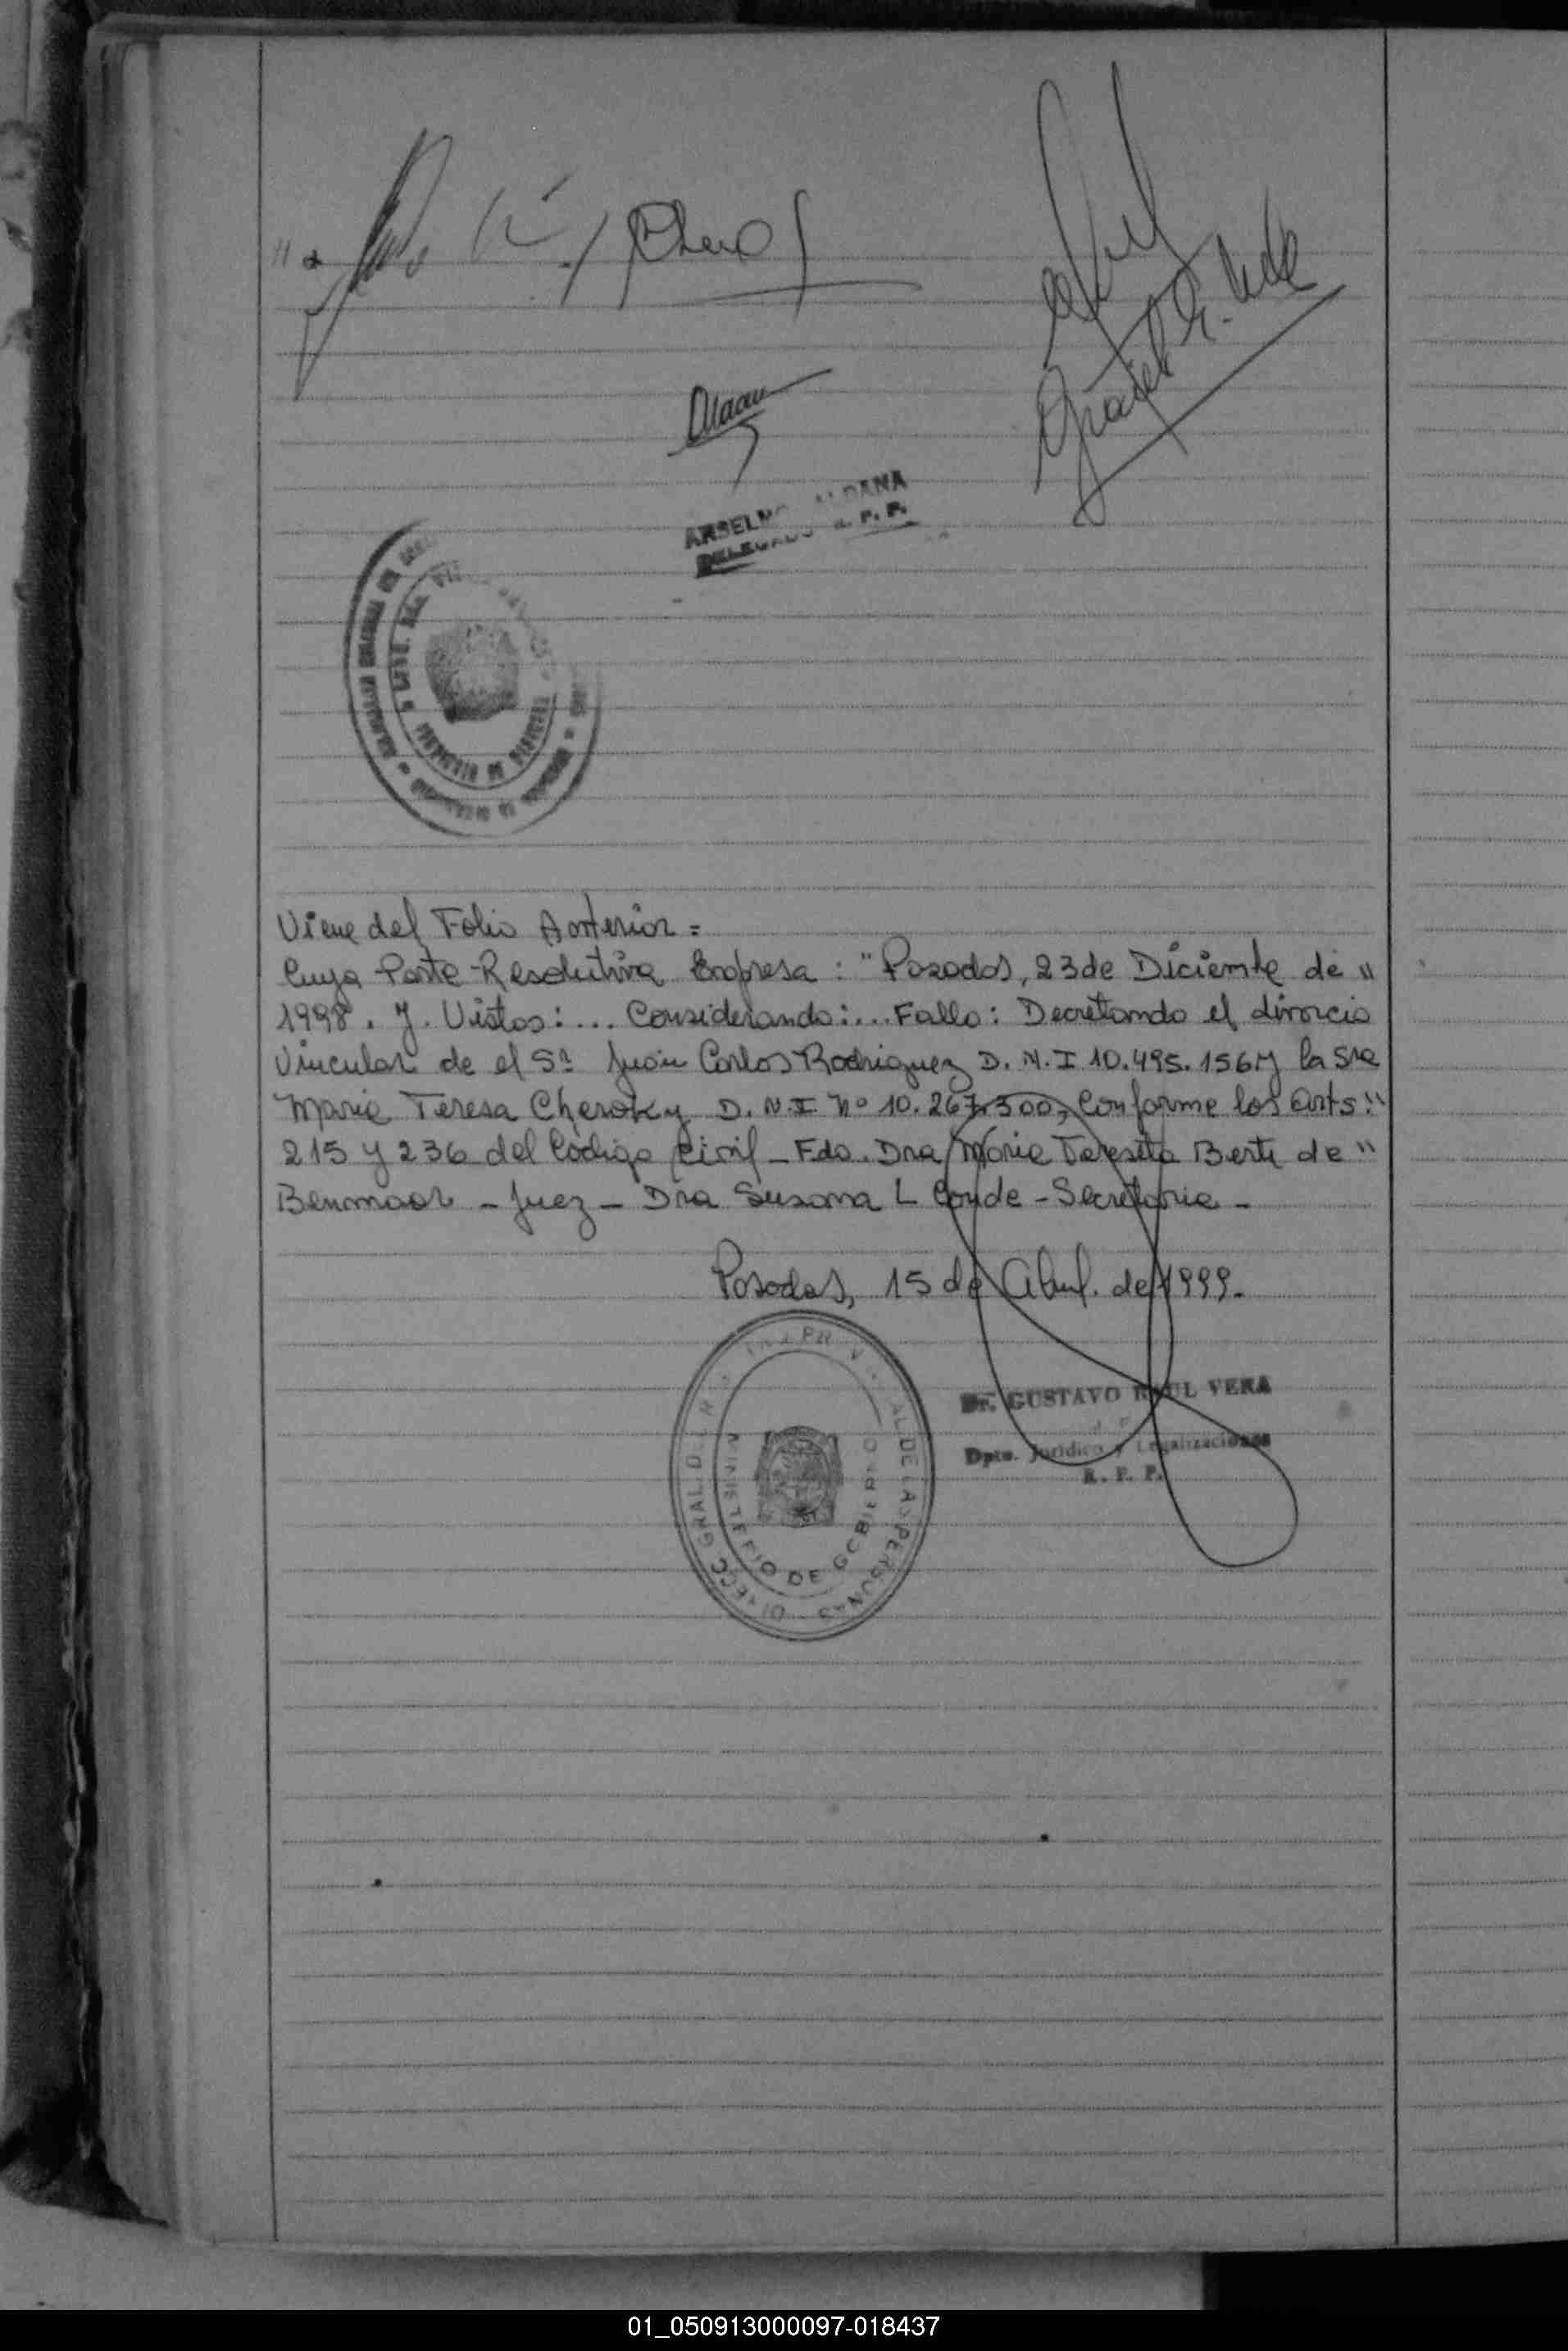 ANSELMO ALDANA
DELEGADO R. P. P.
Viene del Folio Anterior =
Cuya Parte Resolutiva Expresa : "Posadas, 23 de Diciembre de "
1998. Y. Vistos: ... Considerando: ... Fallo: Decretando el divorcio
Vincular de el Sr Juan Carlos Rodriguez D. N. I 10.495.156 y la Sra
Maria Teresa Cheroky D. N. I. Nº 10.267.300, Conforme los Arts: "
215 y 236 del Código Civil - Fdo. Dra Maria Teresita Berti de "
Benmaor - Juez - Dra Susana L Conde - Secretaria -
Posadas, 15 de Abril. de 1999.
Dr. GUSTAVO RAUL VERA
Dpto. Jurídico y Legalizaciones
R. P. P.
DIRECC GRAL. DEL REG PROVINCIAL DE LAS PERSONAS
MINISTERIO DE GOBIERNO
01_050913000097-018437